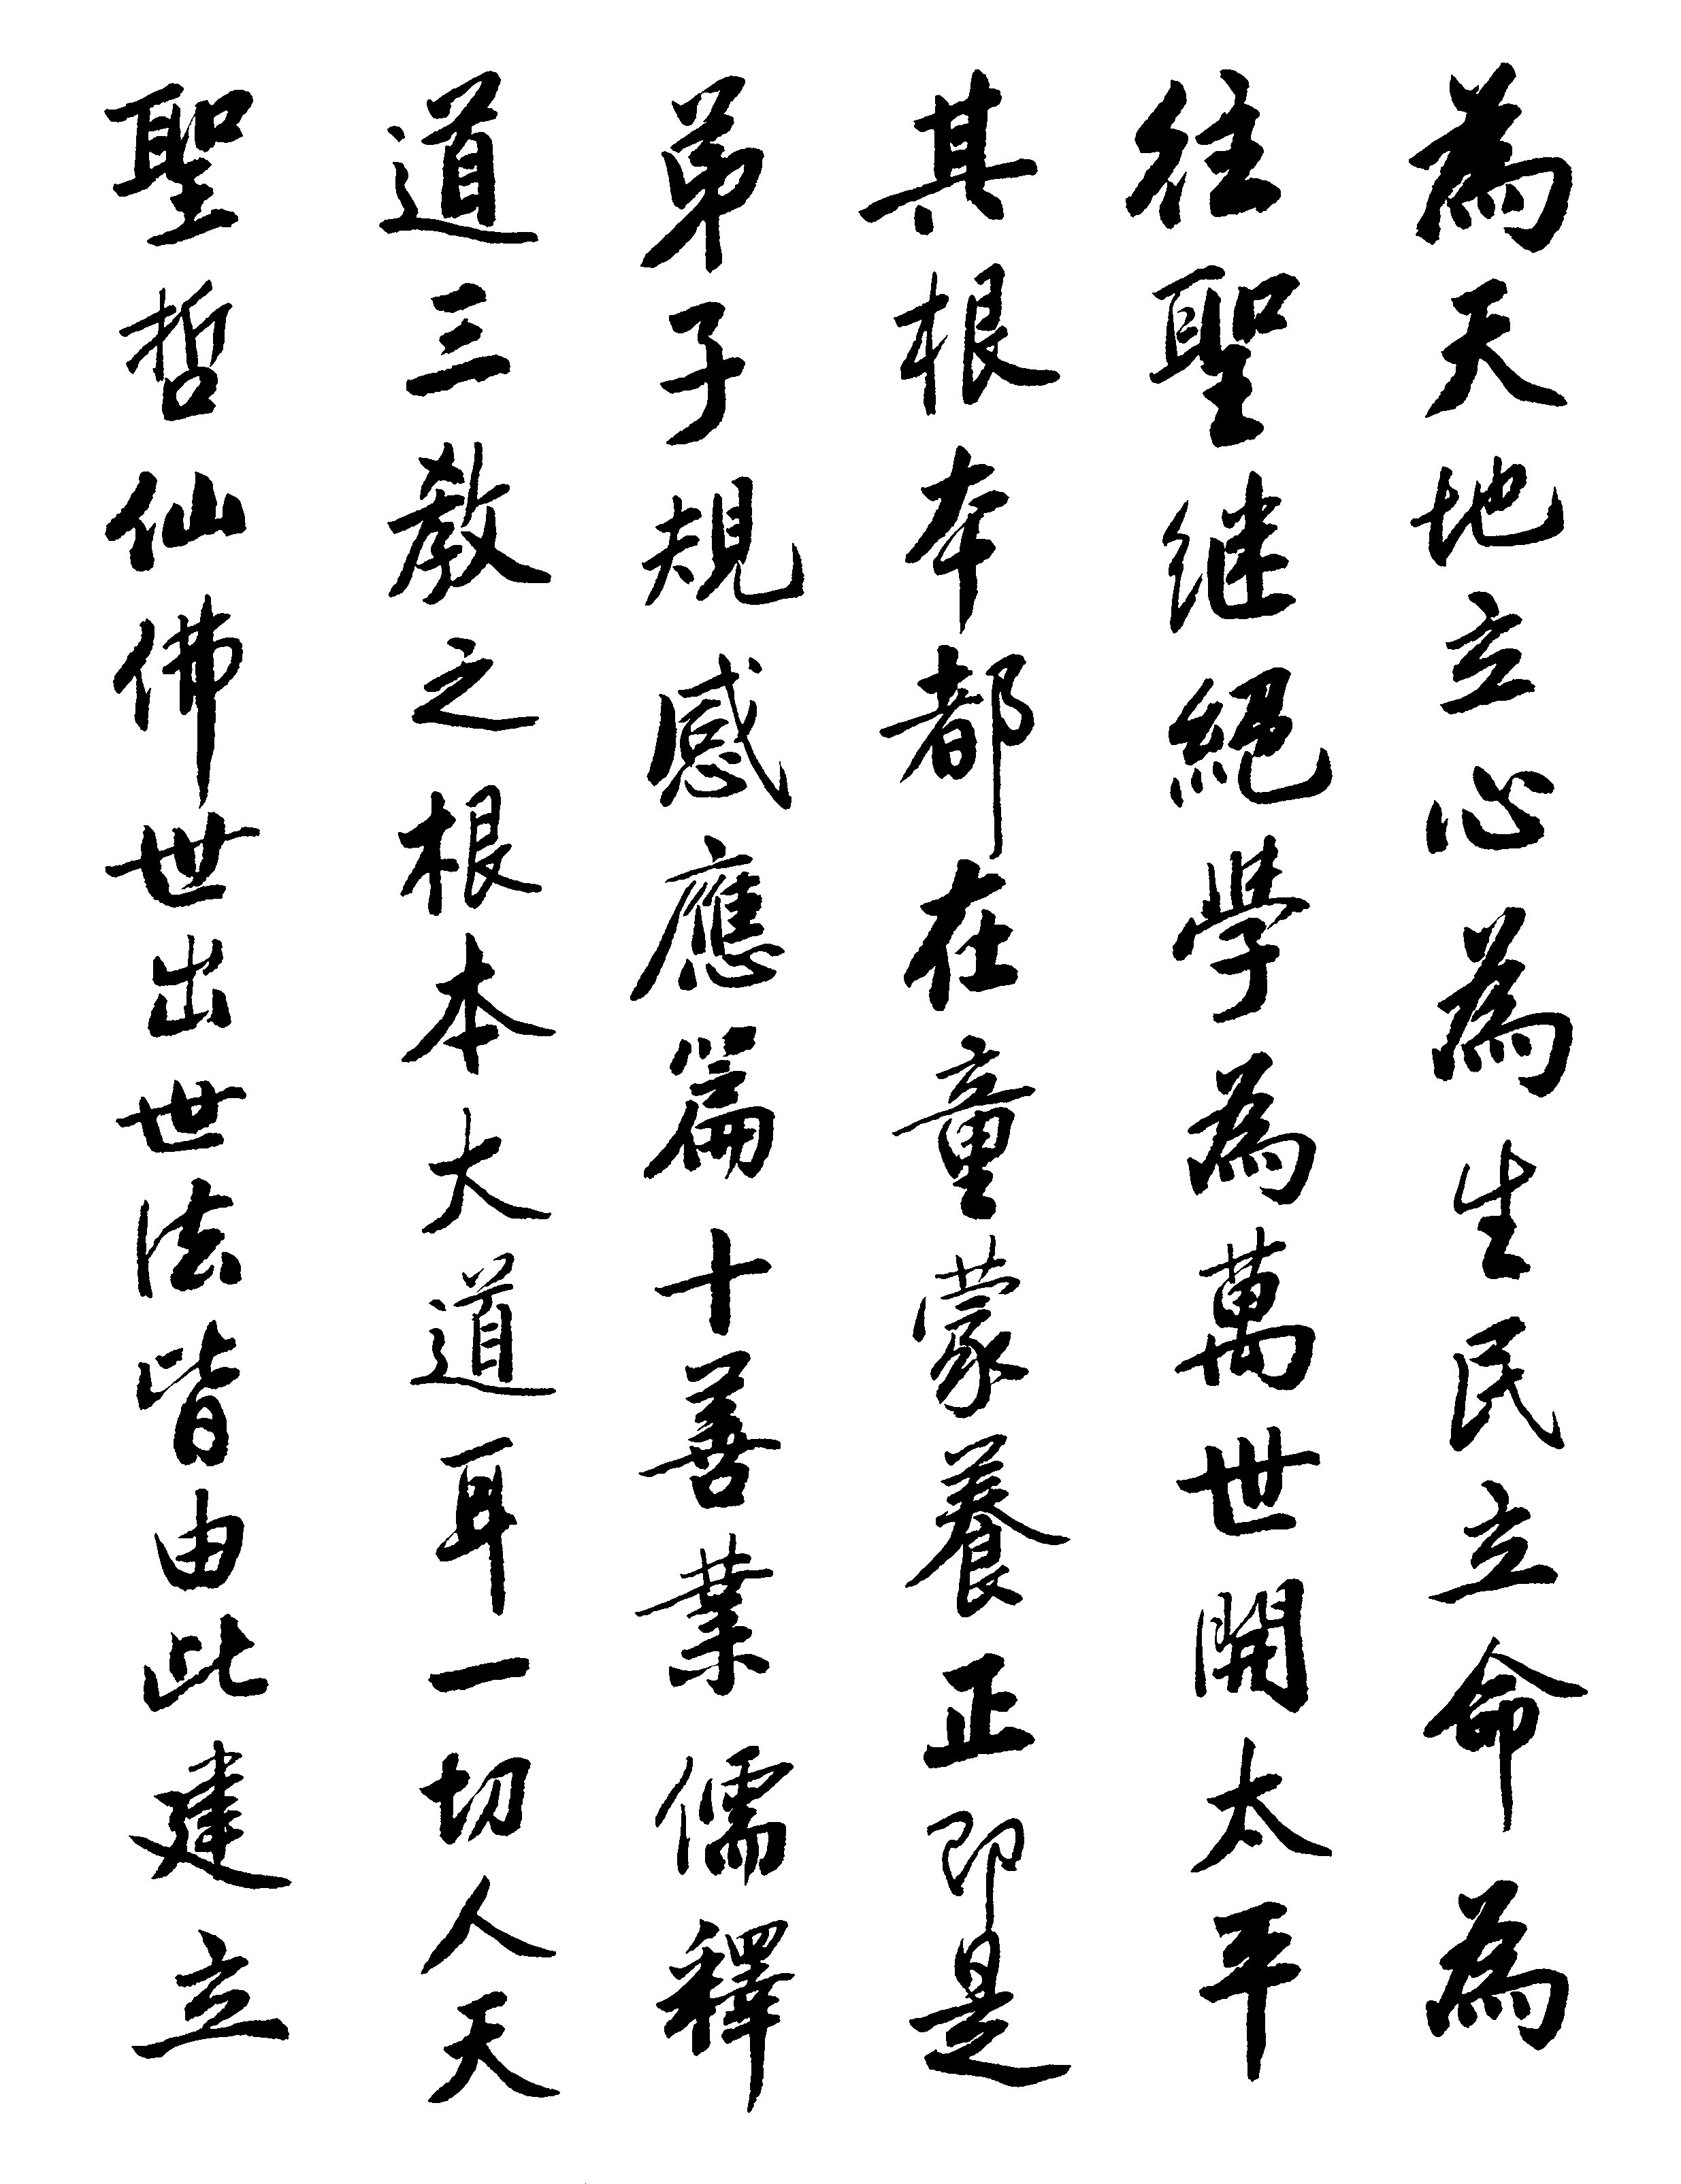 為天地立心為生民立命為
往聖继絕學為萬世開太平
其根本都在童蒙養正即是
弟子規感應篇十善業儒釋
道三教之根本大道耳一切人天
聖哲仙佛世出世法皆由此建立